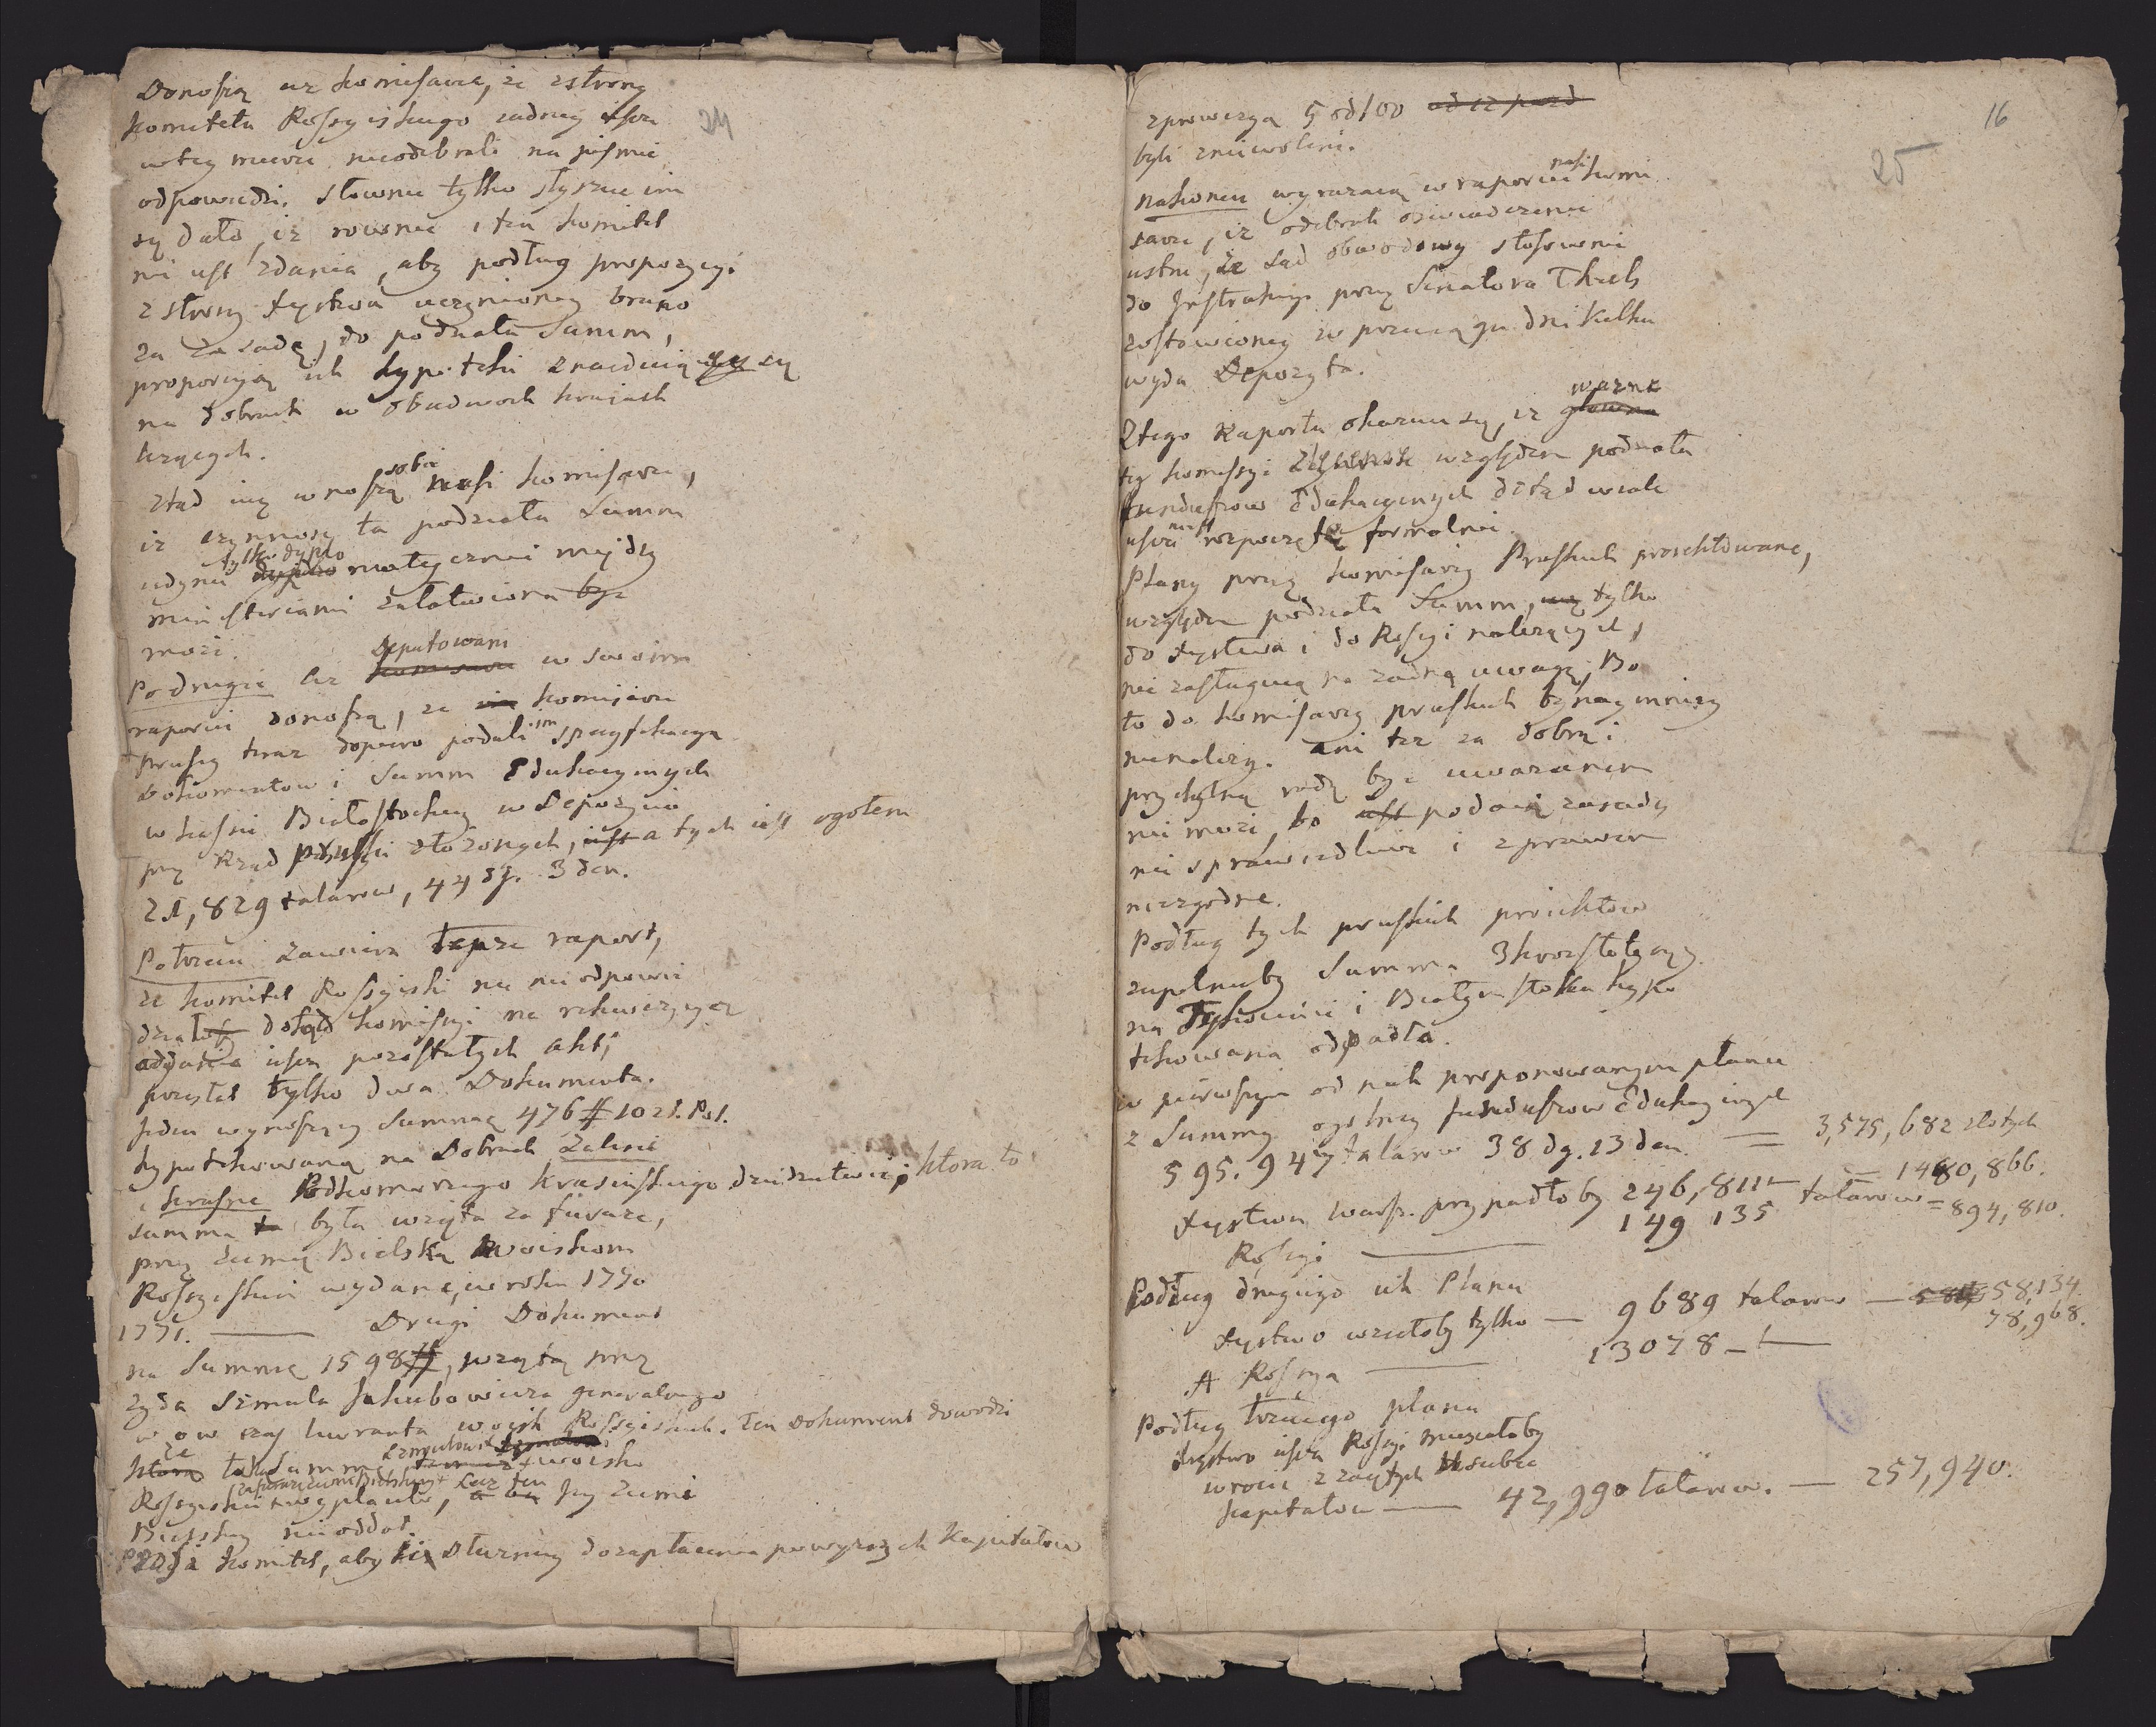 24
Donoszą też komisarze, że z strony
komitetu Rossyiskiego żadney ieszcze
w tey mierze nieodebrali na piśmie
odpowiedzi. Słownie tylko słyszeć im
się dało, iż rownie i ten komitet
nie iest zdania, aby podług propozycyi
z strony Xięstwa uczynioney brano
za zasadę, do podziału Summ,
proporcyią ich hypoteki znaiduiącey się
na dobrach w obudwoch kraiach
leżących.
Ztąd więc wnoszą sobie nasi komisarze,
iż czynność ta podziału Summ
iedynie tylko dyplomatycznie między
ministeriami załatwiona być
może.
Po drugie też komisarze Deputowani w swoim
raporcie donoszą, że komisarze
pruscy teraz dopiero podali im specyfikacyą
dokumentow i Summ Edukacyinych
w kassie Białostockiey w Depozycie
przez Rząd pruski złożonych, iest a tych iest ogołem
21,829 talarow, 44 dg. 3 den.
Potrzecie zawiera tenże raport,
że komitet Rossyiski nic nie odpowie
dział dotąd komissyi na rekwizycyą
oddania ieszcze pozostałych akt;
przysłał tylko dwa Dokumenta.
Jeden wynoszący Summę 476 # 10 zł. Pol.
hypotekowaną na Dobrach Zalesie
i Krasne Podkomorzego Krasińskiego dziedzictwie; ktora to
summa ta była wzięta za furaże,
przez Ziemię Bielską woiskom
Rossyiskim wydane, w roku 1770
1771. Drugi Dokument
na Summę 1598 #, wziętą przez
żyda Szmula Jakubowicza generalnego
w ow czas liwranta woisk Rossyiskich. Ten Dokument dowodzi
ktora że ta Summa Szmulowi woisko
Rossyiskie za furaże ziemi Bielskiey wypłaciło, a on lecz ten jey ziemi
Bielskiey nie oddał.
Żąda komitet, aby ci Dłużnicy do zapłacenia powyższych kapitałow
16
25
z prowizyą 5 od 100 od tż pozd
byli zniewoleni.
Nakoniec wyrażaią w raporcie nasi komi
sarze, iż odebrali oświadczenie
ustne, że Sąd obwodowy stosownie
do Instrukcyi przez Senatora Theils
zostawioney w przeciągu dni kilku
wyda Depozyta.
Z tego Raportu okazuie się, iż główna ważna
tey komissyi względem podziału
funduszow Edukacyinych dotąd wcale
ieszcze nie iest rozpoczętą formalnie.
Plany przez komisarzy Pruskich proiektowane,
względem podziału Summ, tylko
do Xięstwa i do Rossyi należących,
nie zasługuią na żadną uwagę; Bo
to do komisarzy pruskich bynaymniey
nienależy. Ani też za dobrą i
przychylną radę być uważanem
nie może, bo iest podaią zasady
nie sprawiedliwe i z prawem
niezgodne.
Podług tych pruskich proiektow
zupełnieby Summa 3kroć stotysięcy
na Tykocinie i Białymstoku hypo
tekowana odpadła.
w pierwszym od nich proponowanym planie
z Summy ogolney funduszow Edukacyinych
595.947 talarow 38 dg. 13 den. = 3,575,682 złotych
Xięstwu warsz. przypadłoby 246,811 = 1480,866.
Rossyi — 149 135 talarow = 894,810.
Podług drugiego ich Planu
Xięstwo wziełoby tylko — 9689 talarow — 58,134.
A Rossya — 13078 — 78,968.
Podług trzeciego planu
Xięstwo ieszcze Rossyi musiałoby
wrocić z zaiętych u siebie
kapitałow — 42,990 talarow. — 257,940.